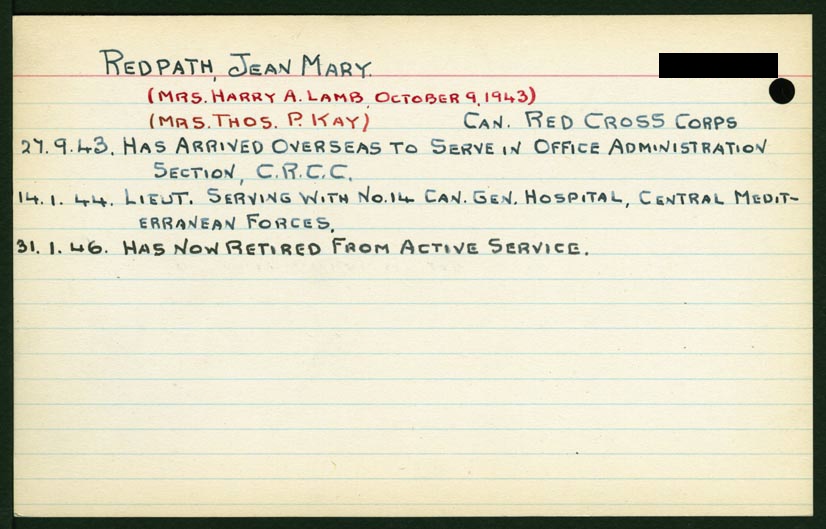 REDPATH, JEAN MARY.
(MRS. HARRY A. LAMB, OCTOBER 9, 1943)
(MRS. THOS. P. KAY) CAN. RED CROSS CORPS
27.9.43. HAS ARRIVED OVERSEAS TO SERVE IN OFFICE ADMINISTRATION
SECTION, C.R.C.C.
14.1.44. LIEUT. SERVING WITH NO.14 CAN. GEN. HOSPITAL, CENTRAL MEDIT-
ERRANEAN FORCES.
31.1.46. HAS NOW RETIRED FROM ACTIVE SERVICE.